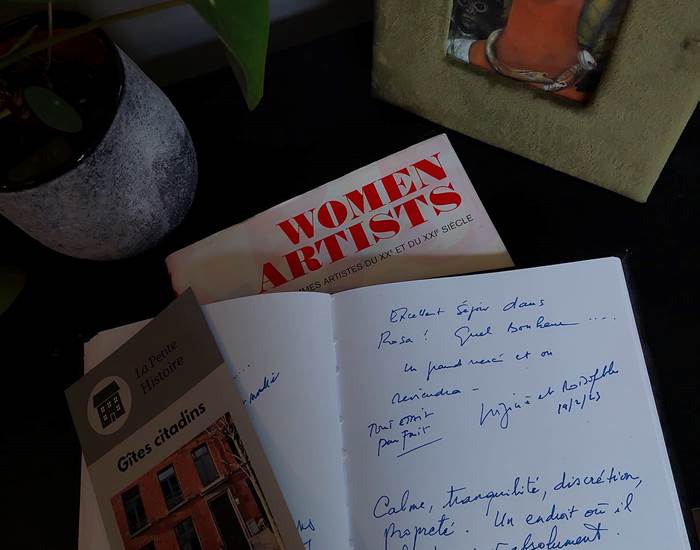 WOMEN
ARTISTS
MMES ARTISTES DU XXᵉ ET DU XXIᵉ SIÈCLE
La Petite
Histoire
Gîtes citadins
Excellent séjour dans
Rosa ! Quel bonheur ....
Un grand merci et on
reviendra -
Tout était
parfait
et
19/2/23
Calme, tranquilité, discrétion,
propreté. Un endroit où il
absolument.